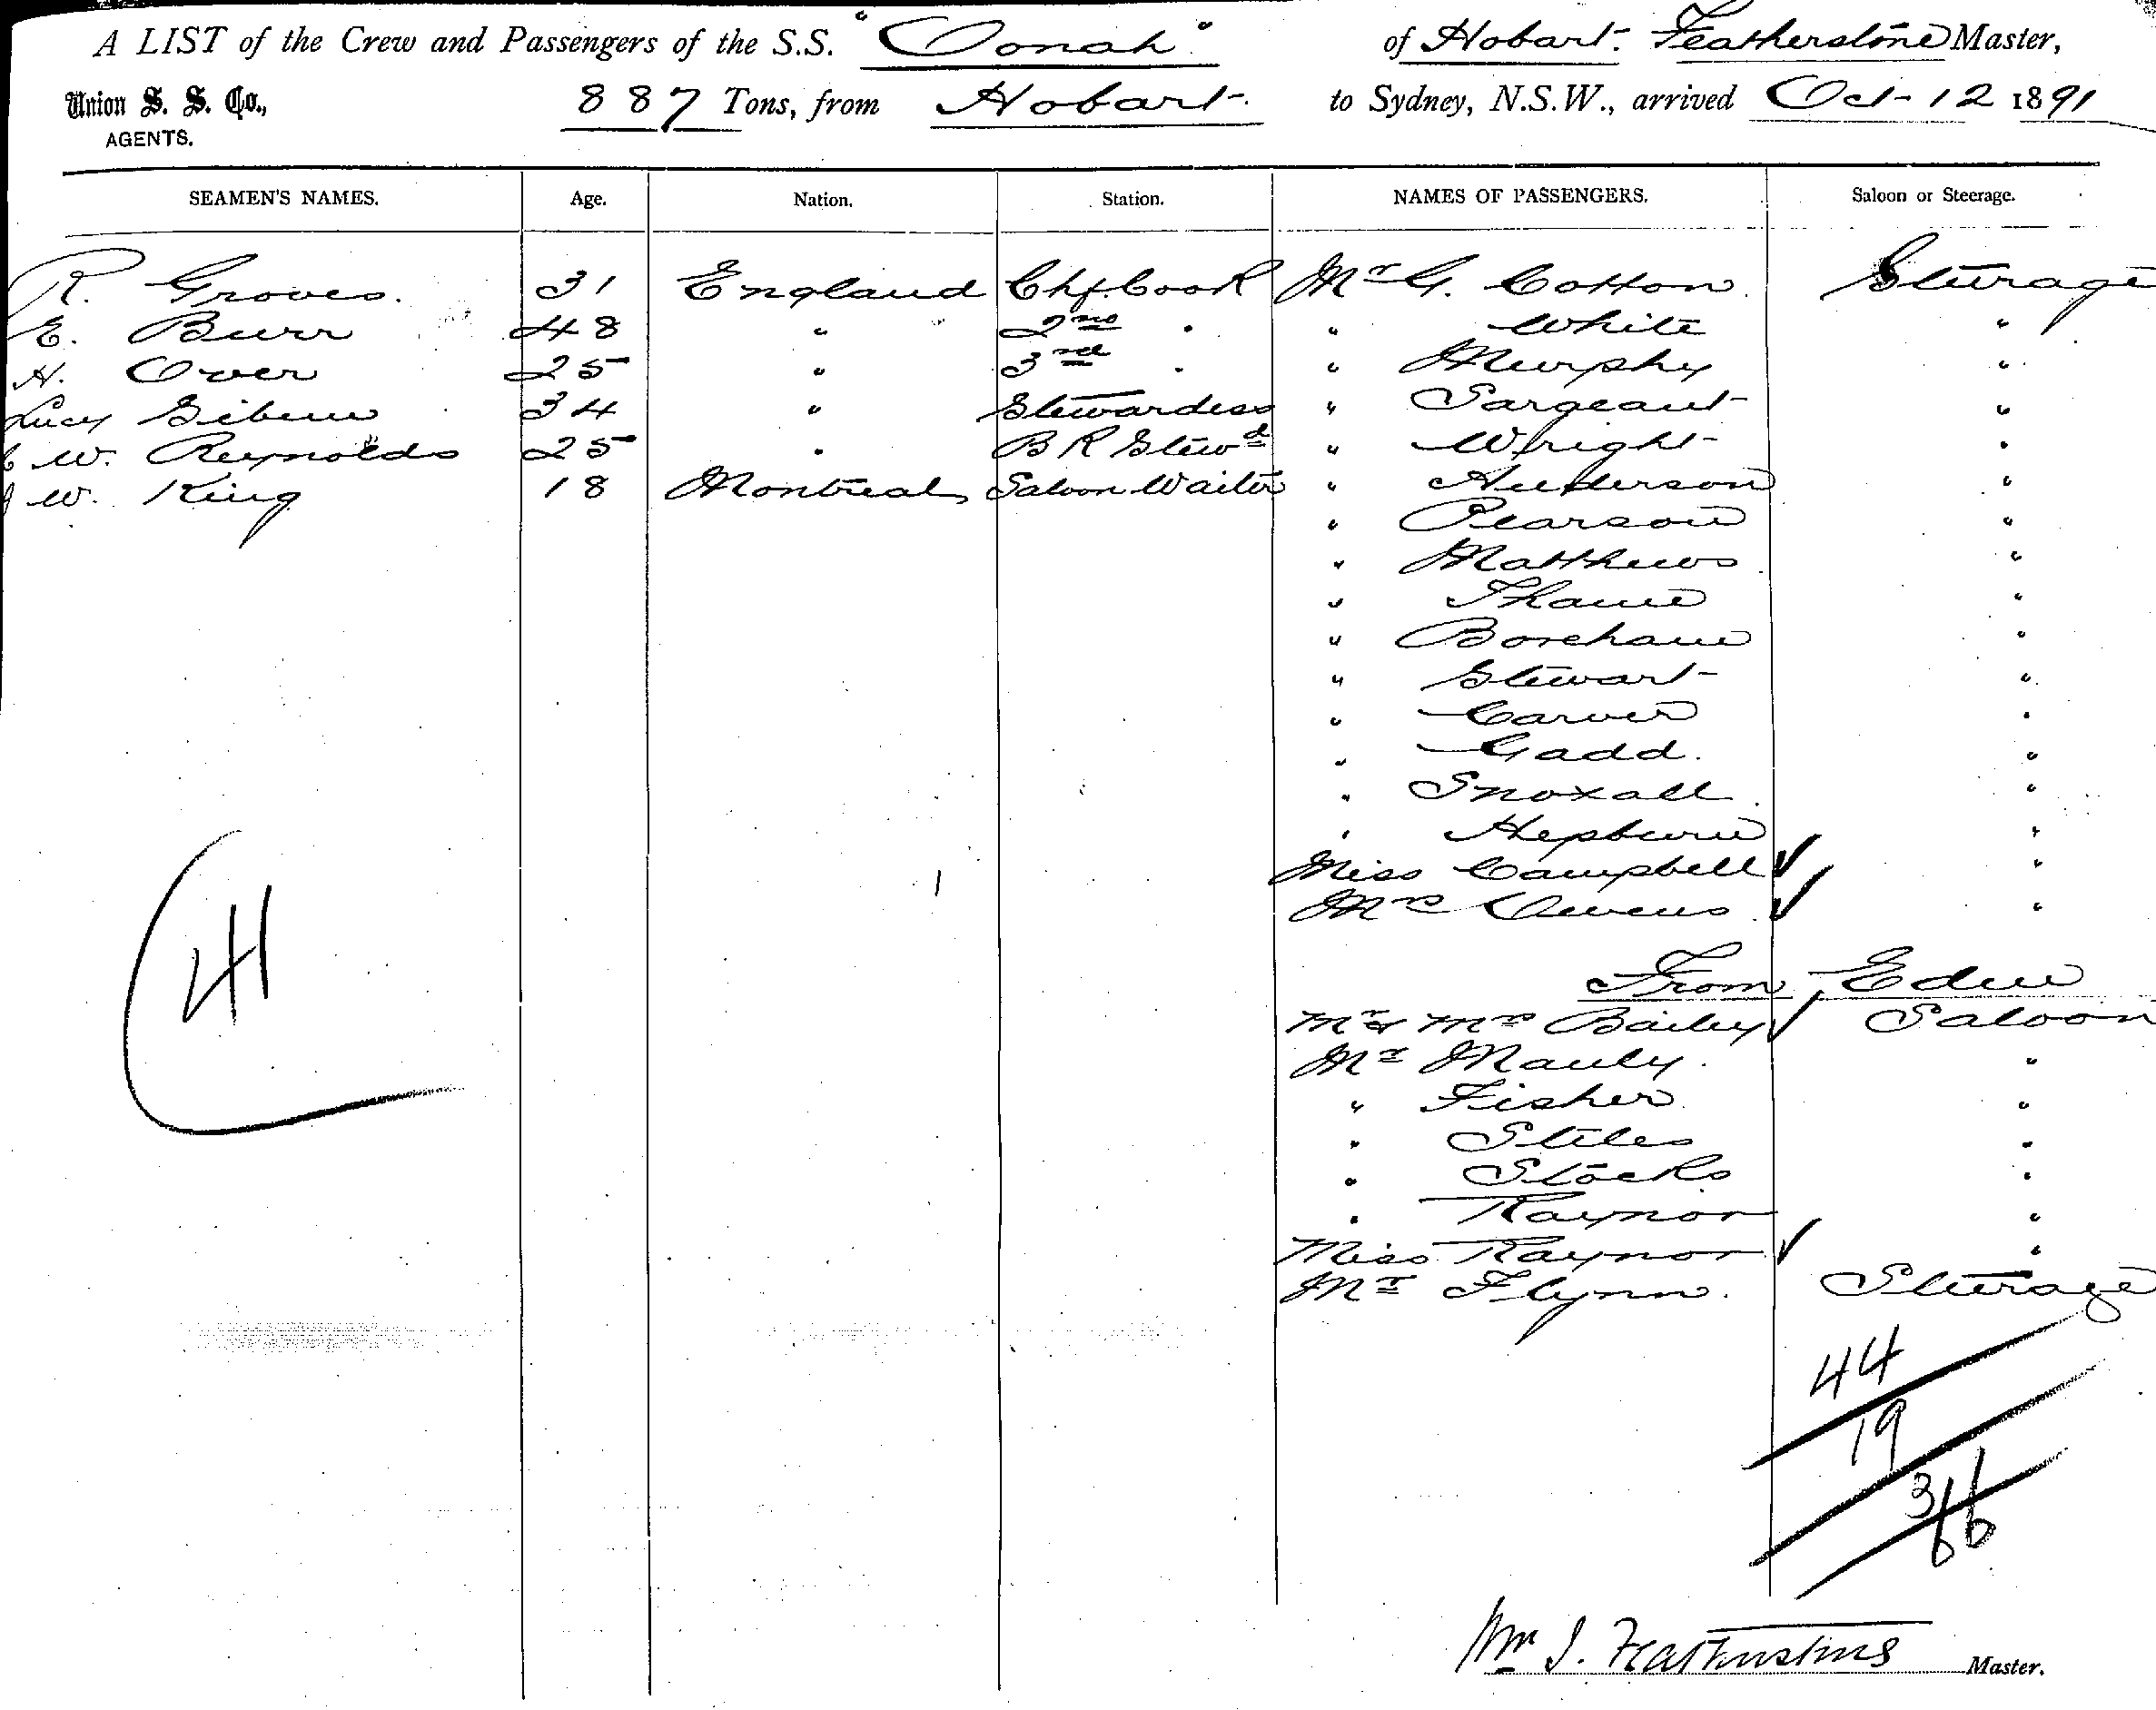 A LIST of the Crew and Passengers of the S.S. "Oonah" of Hobart. Featherstone Master,
Union S. S. Co., 887 Tons, from Hobart to Sydney, N.S.W., arrived Oct 12 1891
AGENTS.
SEAMEN'S NAMES. Age. Nation. Station. NAMES OF PASSENGERS. Saloon or Steerage.
R. Groves. 31 England Chf. Cook Mr G. Cotton Steerage
E. Burr 48 " 2nd " " White "
H. Over 25 " 3rd " " Murphy "
Lucy 34 " Stewardess " Sargeant "
W. Reynolds 25 " B R Stewd " Wright "
W. King 18 Montreal Saloon Waiter " Anderson "
" Pearson "
" Matthews "
" Thame "
" Boreham "
" Stewart "
" Carver "
" Gadd. "
" Snoxall "
" Hepburn "
Miss Campbell "
Mrs Owens "
From Eden
Mr & Mrs Bailey Saloon
Mr Manly. "
" Fisher "
" Stiles "
" Stocks "
" Raynor "
Miss Raynor "
Mr Flynn. Steerage
41
44
19
3/66
Wm J. Featherstone Master.